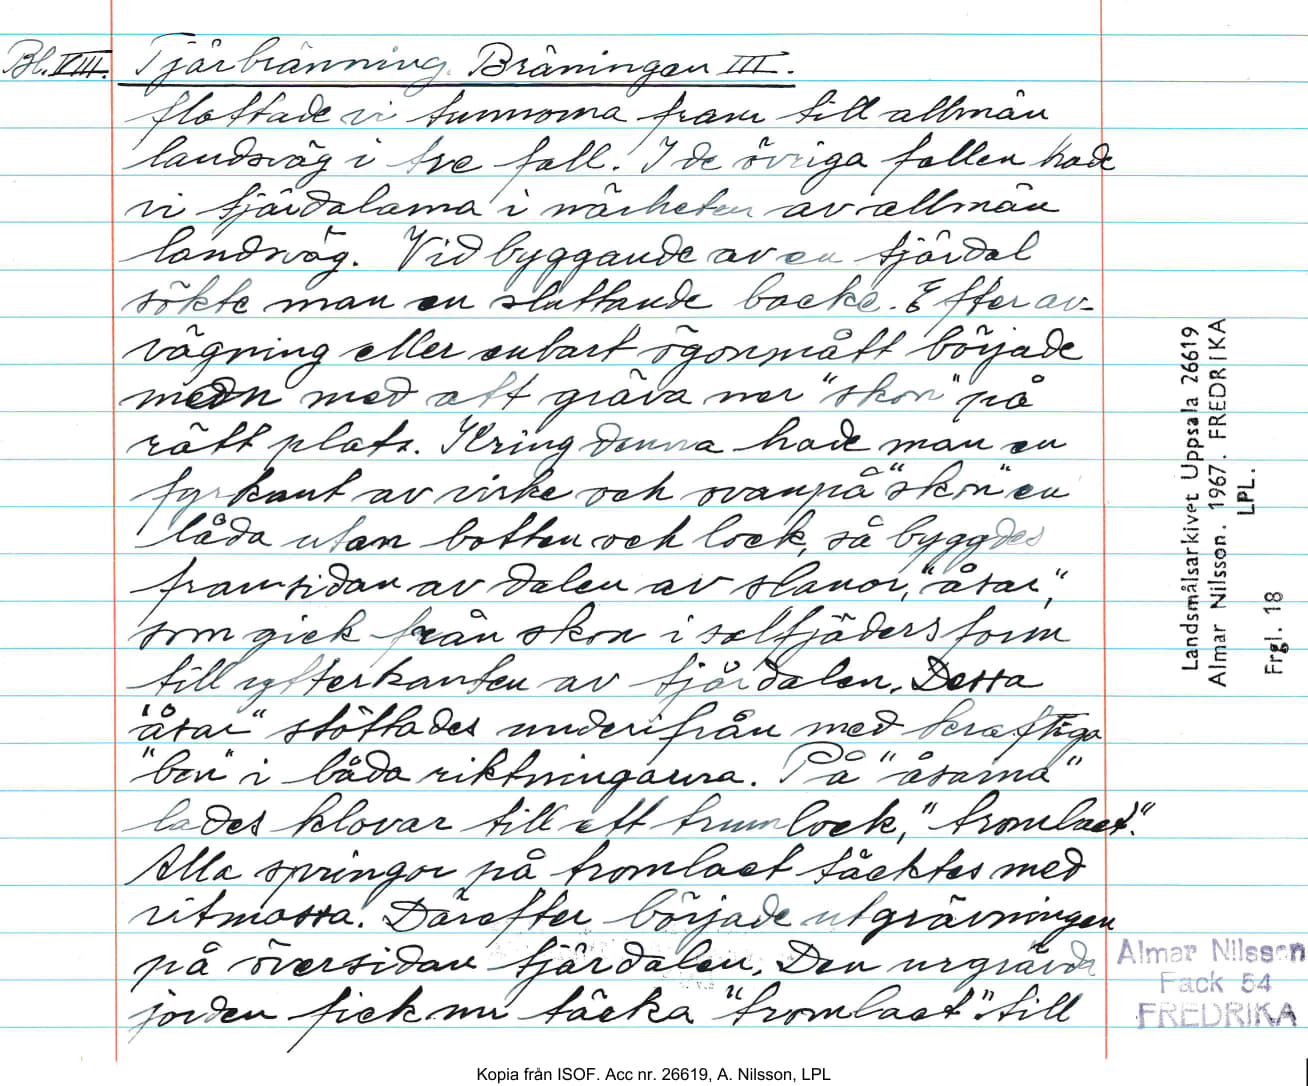 Bl. VIII. Tjärbränning. Bräningen III.
flottade vi tunnorna fram till allmän
landsväg i tre fall. I de övriga fallen hade
vi tjärdalarna i närheten av allmän
landsväg. Vid byggande av en tjärdal
sökte man en sluttande backe. Efter av-
vägning eller enbart ögonmått började
men med att gräva ner "skon" på
rätt plats. Kring denna hade man en
fyrkant av virke och ovanpå "skon" en
låda utan botten och lock, så byggdes
framsidan av dalen av slanor, "åsar",
som gick från skon i solfjäders form
till ytterkanten av tjärdalen. Dessa
"åsar" stöttades underifrån med kraftiga
"ben" i båda riktningarna. På "åsarna"
lades klovar till ett trumlock, "tromlaet".
Alla springor på tromlaet täcktes med
vitmossa. Därefter började utgrävningen
på översidan tjärdalen. Den urgrävda
jorden fick nu täcka "tromlaet" till
Landsmålsarkivet Uppsala 26619
Almar Nilsson. 1967. FREDRIKA
LPL.
Frgl. 18
Almar Nilsson
Fack 54
FREDRIKA
Kopia från ISOF. Acc nr. 26619, A. Nilsson, LPL